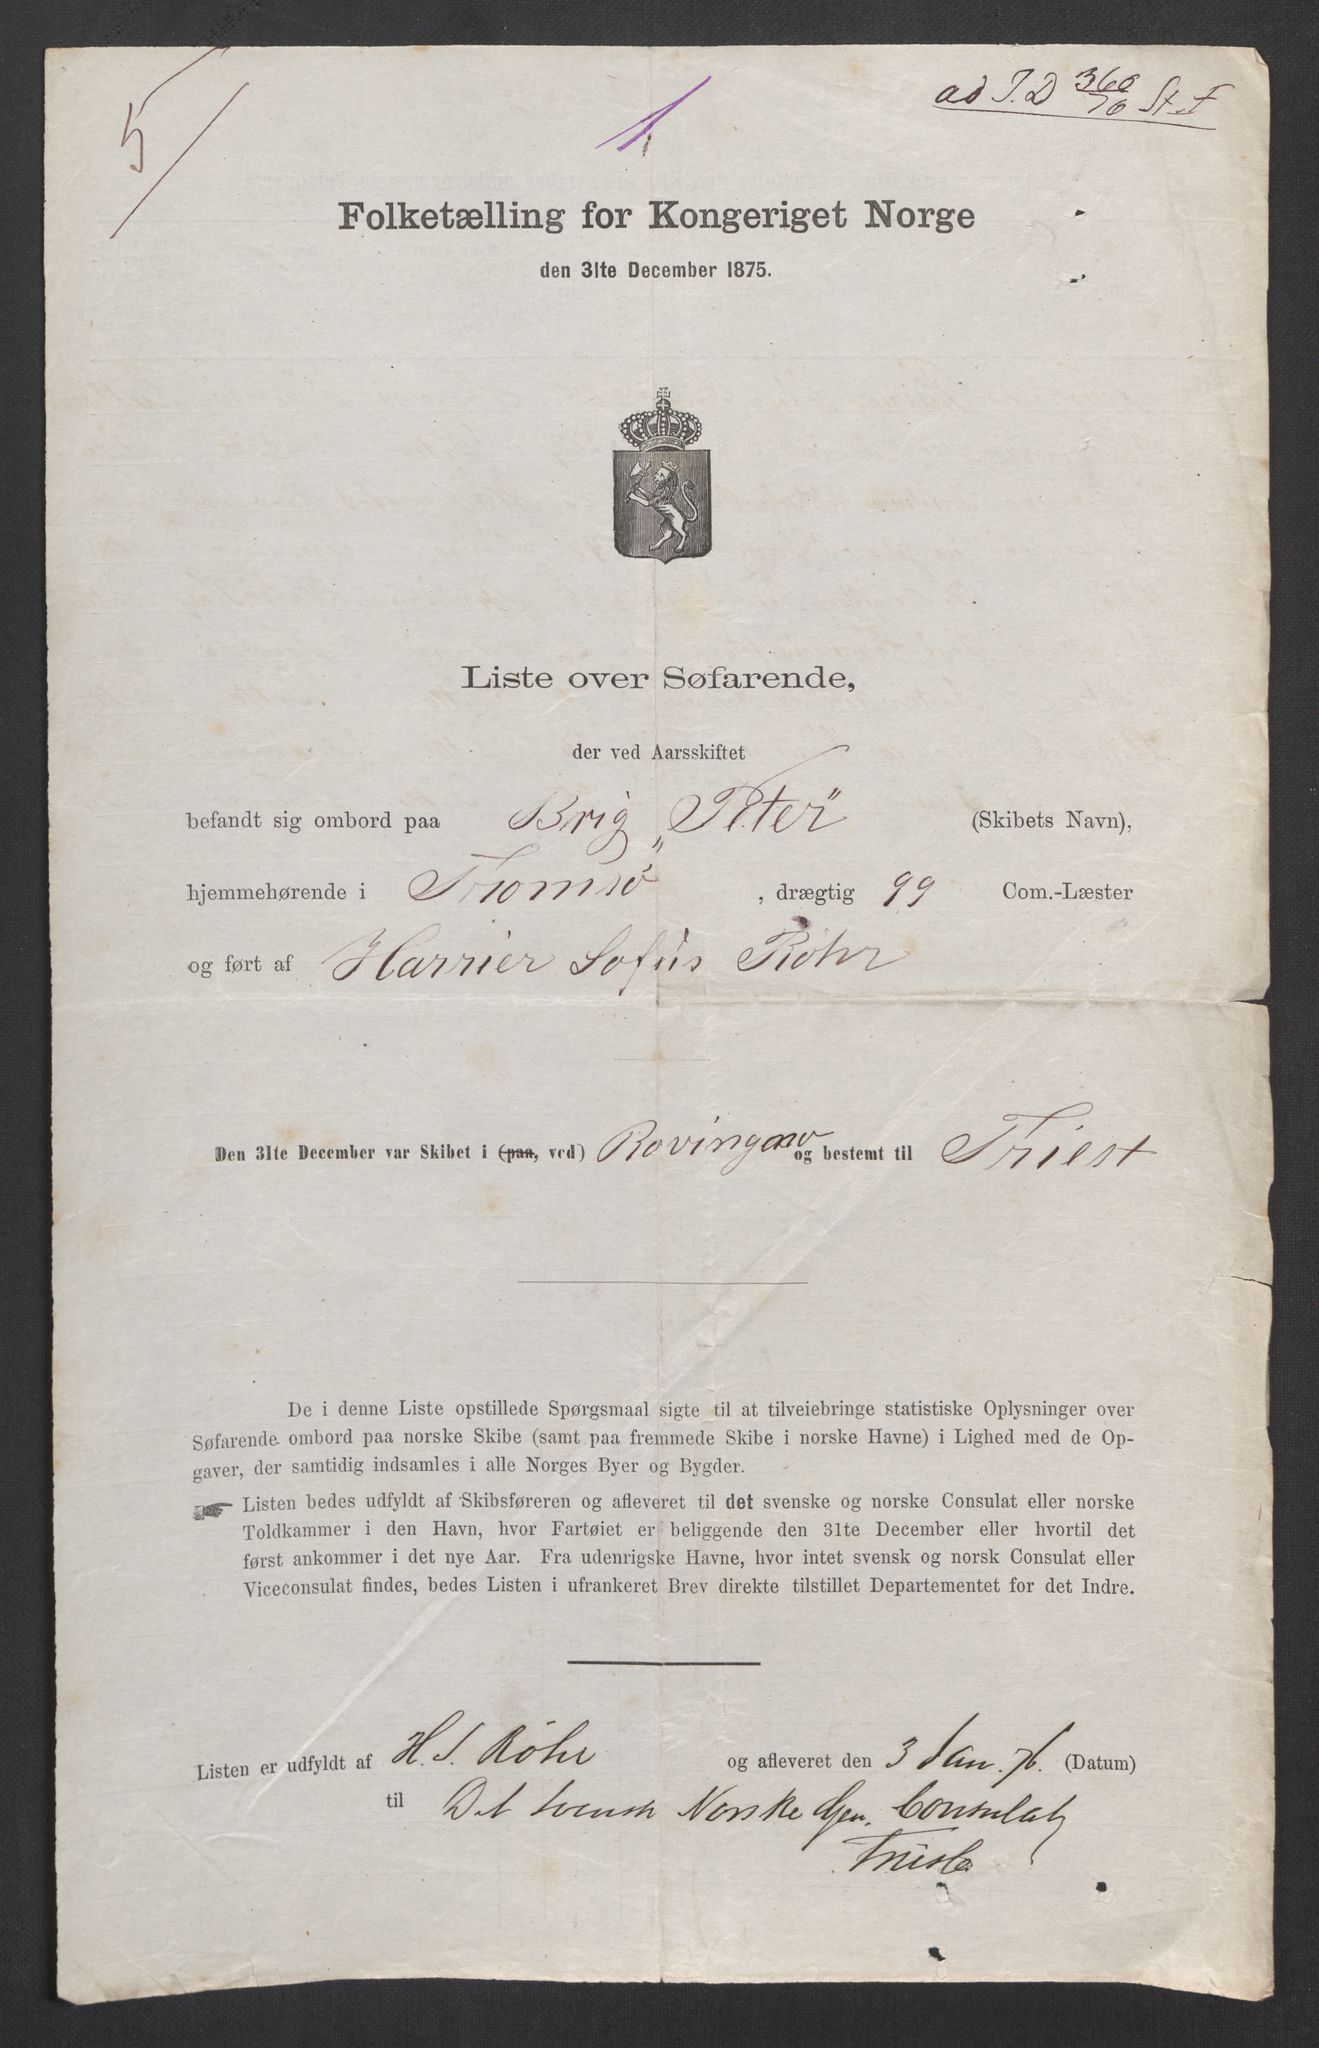 5
1
ad J.D 360/76 St. F
Folketælling for Kongeriget Norge
den 31te December 1875.
Liste over Søfarende,
der ved Aarsskiftet
befandt sig ombord paa Brig „Peter" (Skibets Navn),
hjemmehørende i Tromsø , drægtig 99 Com.-Læster
og ført af Harrier Sofus Rohr
Den 31te December var Skibet i (paa, ved) og bestemt til Triest
De i denne Liste opstillede Spørgsmaal sigte til at tilveiebringe statistiske Oplysninger over
Søfarende ombord paa norske Skibe (samt paa fremmede Skibe i norske Havne) i Lighed med de Op-
gaver, der samtidig indsamles i alle Norges Byer og Bygder.
☛ Listen bedes udfyldt af Skibsføreren og afleveret til det svenske og norske Consulat eller norske
Toldkammer i den Havn, hvor Fartøiet er beliggende den 31te December eller hvortil det
først ankommer i det nye Aar. Fra udenrigske Havne, hvor intet svensk og norsk Consulat eller
Viceconsulat findes, bedes Listen i ufrankeret Brev direkte tilstillet Departementet for det Indre.
Listen er udfyldt af H. S. Röhr og afleveret den 3 Jan. 76. (Datum)
til Det svensk Norske Gen. Consulat
Triest